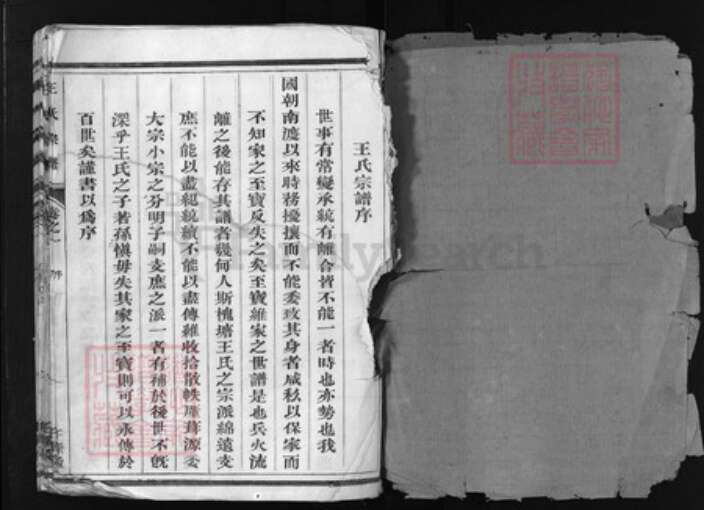 王氏宗譜序
世事有常變承統有離合皆不能一者時也亦勢也我
國朝南渡以來時務擾攘而不能委致其身者咸私以保家而
不知家之至寶反失之矣至寶維家之世譜是也兵火流
離之後能存其譜者幾何人斯槐塘王氏之宗派綿遠支
庶不能以盡紀統續不能以盡傳維收拾散帙源委
大宗小宗之分明子嗣支庶之派一者有補於後世不既
深乎王氏之子若孫愼毋失其家之至寶則可以永傳於
百世矣謹書以爲序
王氏宗譜
卷之一
序